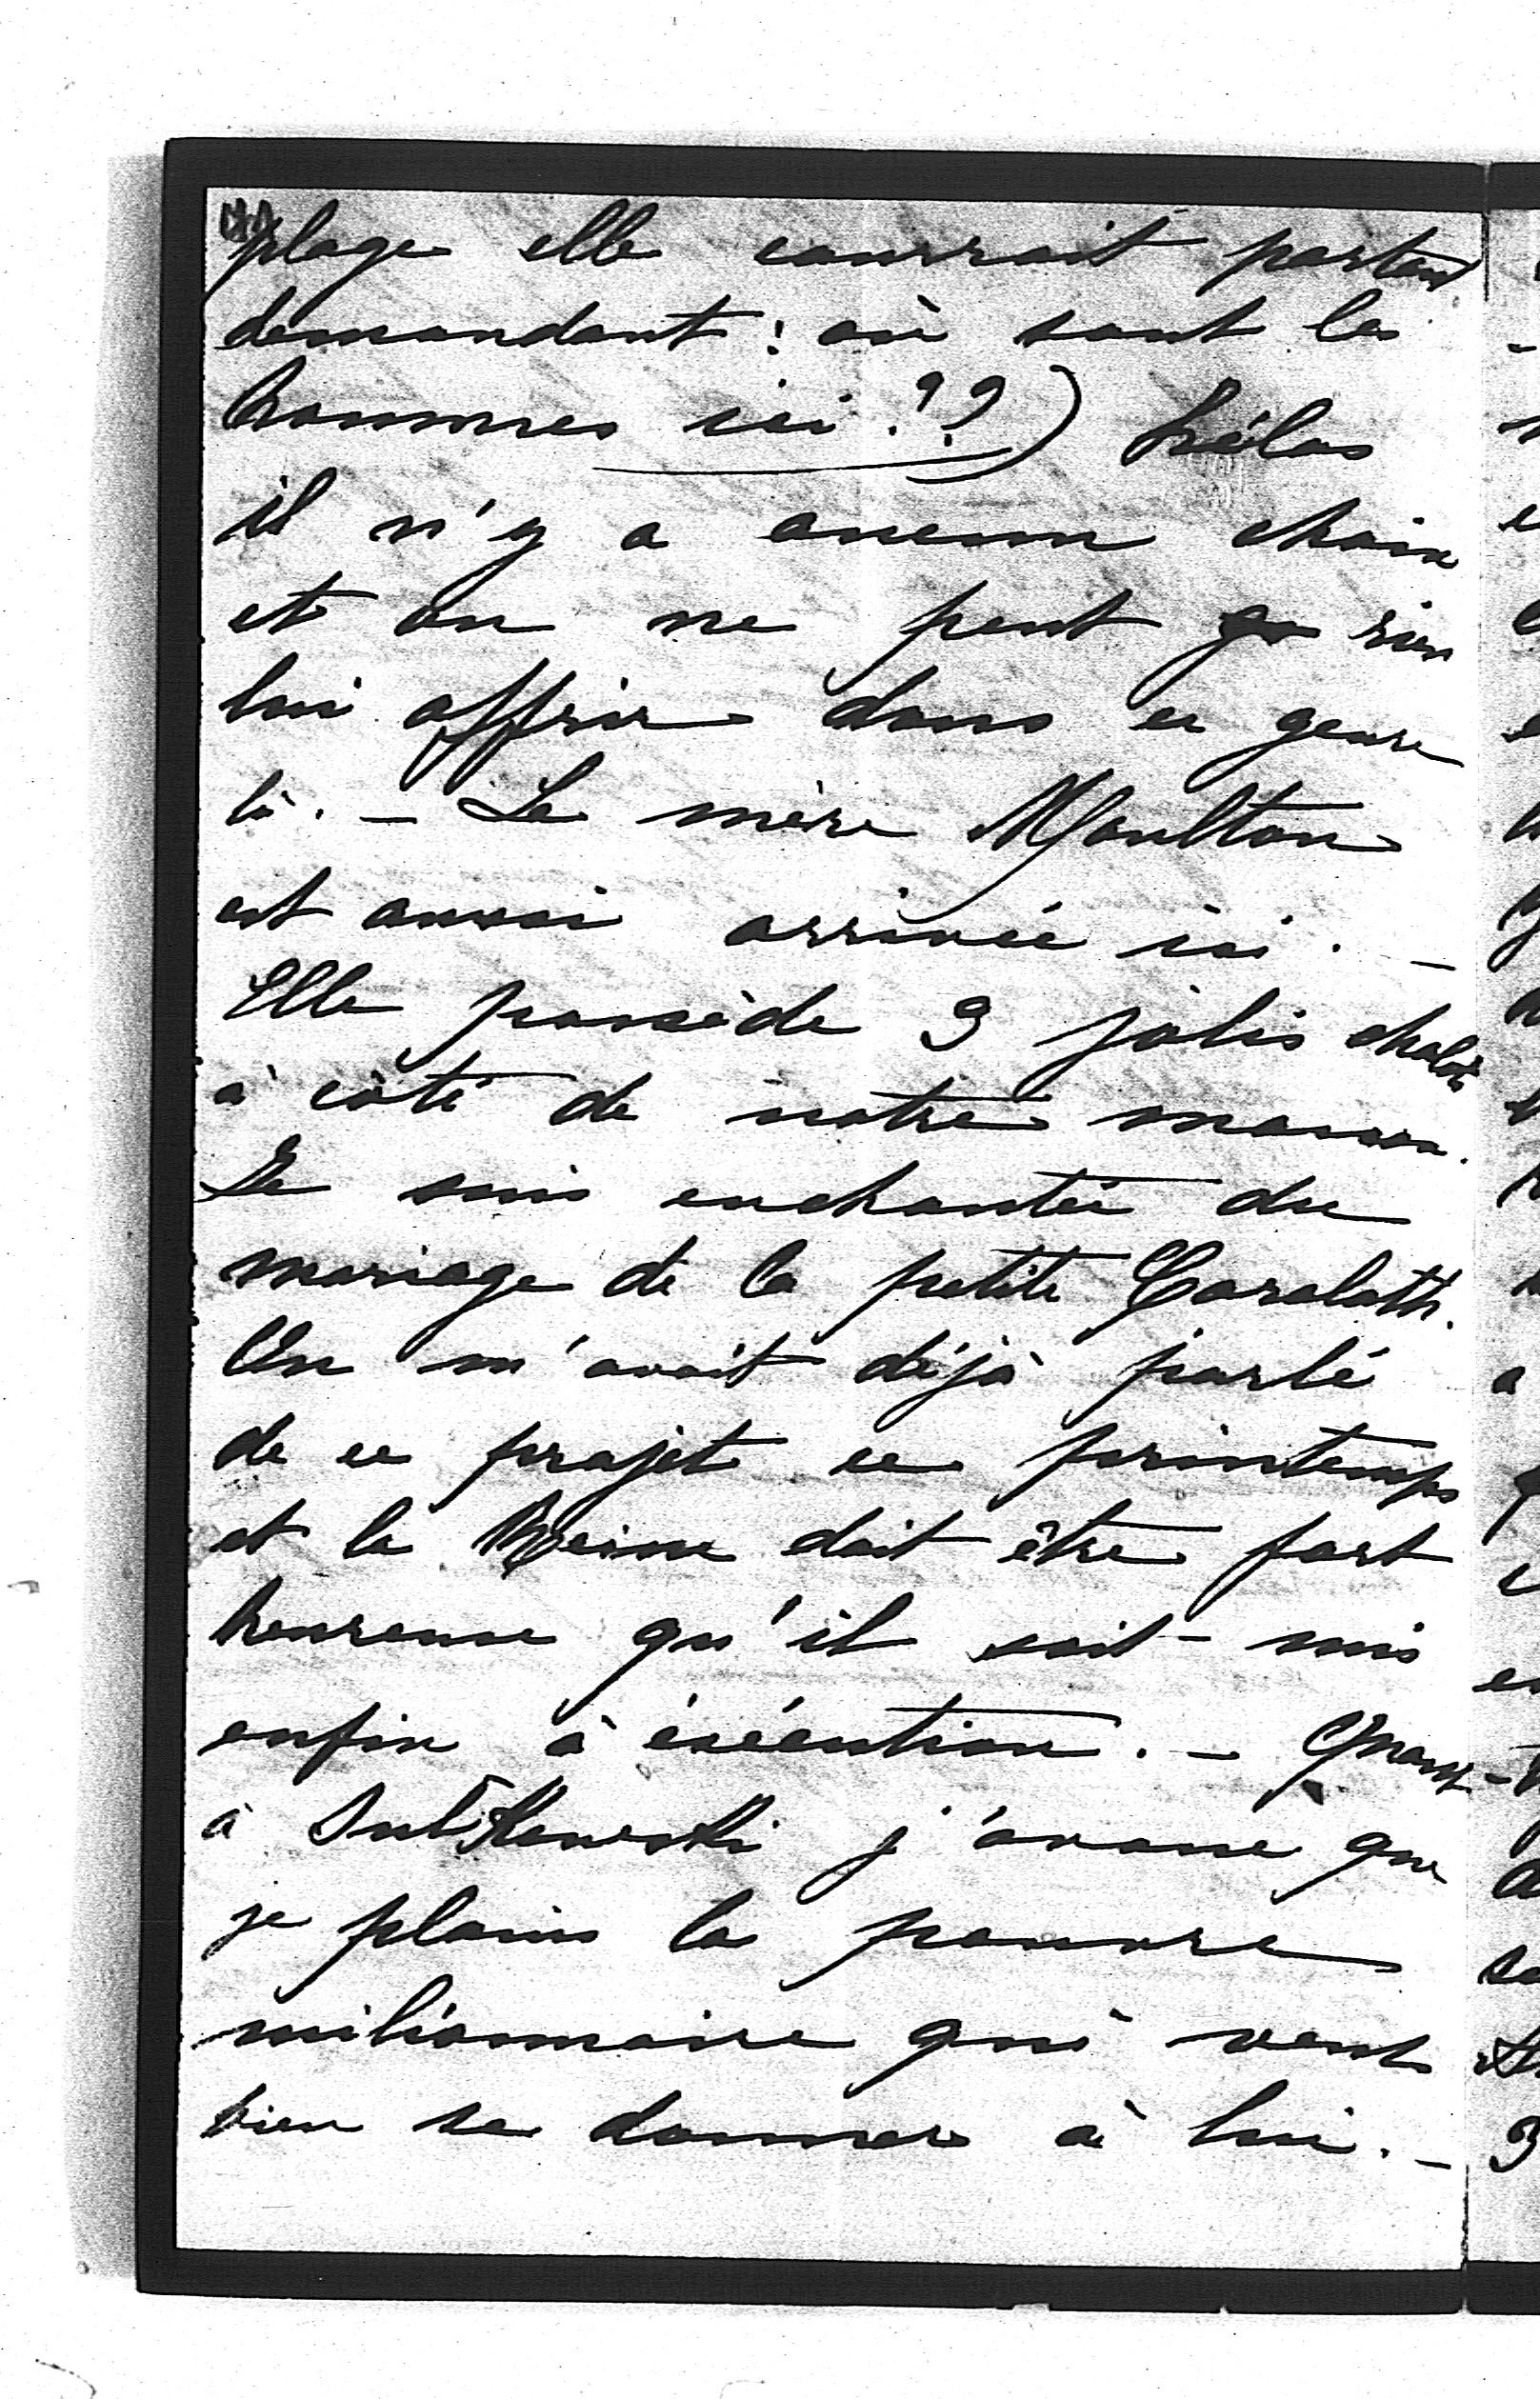 plage elle courrait partout
demandant : où sont les
hommes ici ??) hélas
il n'y a aucun choix
et on ne peut rien
lui offrir dans ce genre
là. – La mère Moulton
est aussi arrivée ici. –
Elle possède 3 jolis chalets
à côté de notre maison.
Je suis enchantée du
mariage de la petite Carolath.
On m'avait déjà parlé
de ce projet ce printemps
et la Reine doit être fort
heureuse qu'il soit mis
enfin à éxécution. – Quant
à Sulkowski j'avoue que
je plains la pauvre
milionnaire qui veut
bien se donner à lui. –